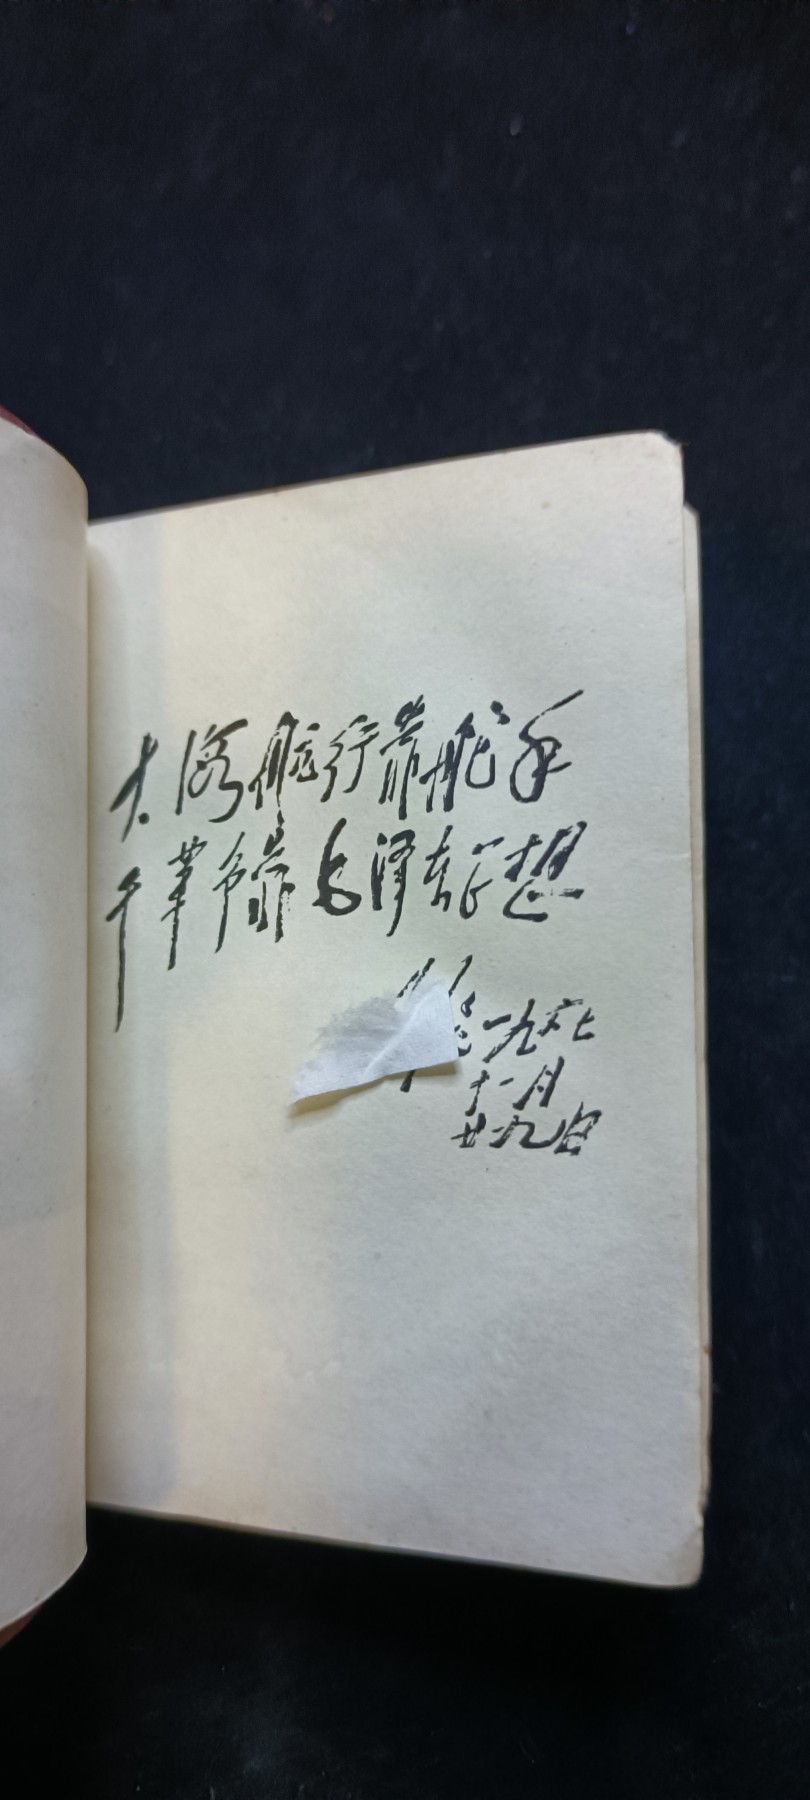 大海航行靠舵手
干革命靠毛泽东思想
一九六七
十一月
廿九日